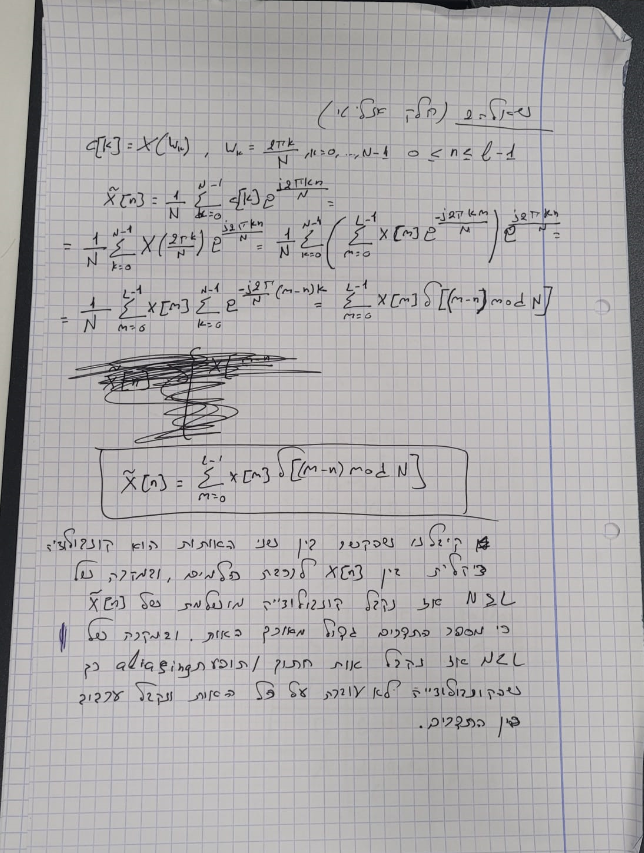 שאלה 2 (חלק אנליטי)
c[k] = X(W_k) , W_k = 2πk/N , k=0,...,N-1 0 ≤ n ≤ l-1
x̃[n] = 1/N Σ_{k=0}^{N-1} c[k] e^{j2πkn/N} =
= 1/N Σ_{k=0}^{N-1} X(2πk/N) e^{j2πkn/N} = 1/N Σ_{k=0}^{N-1} ( Σ_{m=0}^{L-1} x[m] e^{-j2πkm/N} ) e^{j2πkn/N} =
= 1/N Σ_{m=0}^{L-1} x[m] Σ_{k=0}^{N-1} e^{-j2π/N (m-n)k} = Σ_{m=0}^{L-1} x[m] δ[(m-n) mod N]
x̃[n] = Σ_{m=0}^{L-1} x[m] δ[(m-n) mod N]
קיבלנו שהקשר בין שני האותות הוא קונבולוציה
ציקלית בין x[n] לרכבת הלמים, ובמקרה של
N≥L אז נקבל קונבולוציה מושלמת של x̃[n]
כי מספר התדרים גדול מאורך האות. ובמקרה של
N<L אז נקבל אות חתוך ותופעת aliasing כך
שהקונבולוציה לא עוברת על כל האות ונקבל ערבוב
בין התדרים.